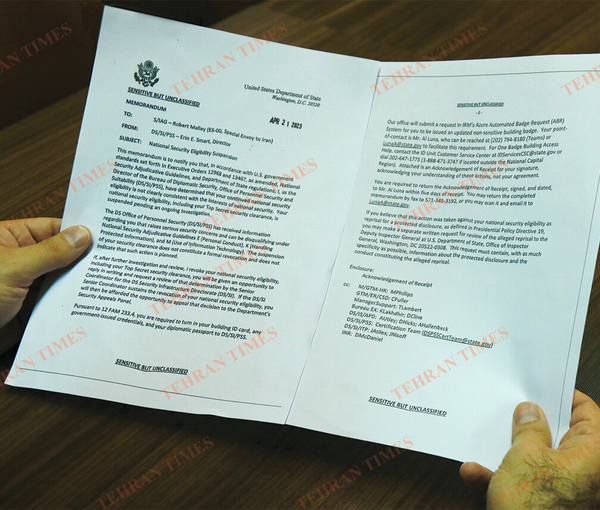 United States Department of State
Washington, D.C. 20520
SENSITIVE BUT UNCLASSIFIED
APR 21 2023
MEMORANDUM
TO: S/IAG – Robert Malley (ES-00, Special Envoy to Iran)
FROM: DS/SI/PSS – Erin E. Smart, Director
SUBJECT: National Security Eligibility Suspension
This memorandum is to notify you that, in accordance with U.S. government
standards set forth in Executive Orders 12968 and 13467, as amended, National
Security Adjudicative Guidelines, and Department of State regulations, I, as the
Director of the Bureau of Diplomatic Security, Office of Personnel Security and
Suitability (DS/SI/PSS), have determined that your continued national security
eligibility is not clearly consistent with the interests of national security. Your
national security eligibility, including your Top Secret security clearance, is
suspended pending an ongoing investigation.
The DS Office of Personnel Security (DS/SI/PSS) has received information
regarding you that raises serious security concerns and can be disqualifying under
National Security Adjudicative Guidelines E (Personal Conduct), K (Handling
Protected Information), and M (Use of Information Technology). The suspension
of your security clearance does not constitute a formal revocation and does not
indicate that such action is planned.
If, after further investigation and review, I revoke your national security eligibility,
including your Top Secret security clearance, you will be given an opportunity to
reply in writing and request a review of that determination by the Senior
Coordinator for the DS Security Infrastructure Directorate (DS/SI). If the DS/SI
Senior Coordinator sustains the revocation of your national security eligibility, you
will then be afforded the opportunity to appeal that decision to the Department's
Security Appeals Panel.
Pursuant to 12 FAM 233.4, you are required to turn in your building ID card, any
government-issued credentials, and your diplomatic passport to DS/SI/PSS.
SENSITIVE BUT UNCLASSIFIED
SENSITIVE BUT UNCLASSIFIED
Our office will submit a request in IRM's Azure Automated Badge Request (ABR)
System for you to be issued an updated non-sensitive building badge. Your point-
of-contact is Mr. Al Luna, who can be reached at (202) 794-8180 (Teams) or
LunaA@state.gov to facilitate this requirement. For One Badge Building Access
Help, contact the ID Unit Customer Service Center at IDServicesCSC@state.gov or
dial 202-647-1773 (1-888-671-3747 if located outside the National Capital
Region). Attached is an Acknowledgement of Receipt for your signature,
acknowledging your understanding of these actions, not your agreement.
You are required to return the Acknowledgement of Receipt, signed, and dated,
to Mr. Al Luna within five days of receipt. You may return the completed
memorandum by fax to 571-345-3192, or you may scan it and email it to
LunaA@state.gov.
If you believe that this action was taken against your national security eligibility as
reprisal for a protected disclosure, as defined in Presidential Policy Directive 19,
you may make a separate written request for review of the alleged reprisal to the
Deputy Inspector General at U.S. Department of State, Office of Inspector
General, Washington, DC 20522-0008. This request must contain, with as much
specificity as possible, information about the protected disclosure and the
conduct constituting the alleged reprisal.
Enclosure:
Acknowledgement of Receipt
cc: M/GTM-HR: MPhillips
GTM/ER/CSD: CFuller
ManagerSupport: TLambert
Bureau EX: KLakhdhir; DCline
DS/IS/APD: AUtley; DHicks; AHallenbeck
DS/SI/PSS: Certification Team (DSPSSCertTeam@state.gov)
DS/SI/ITP: JAtiles; JNisoff
INR: DMcDaniel
SENSITIVE BUT UNCLASSIFIED
TEHRAN TIMES
TEHRAN TIMES
TEHRAN TIMES
TEHRAN TIMES
TEHRAN TIMES
TEHRAN TIMES
TEHRAN TIMES
TEHRAN TIMES
TEHRAN TIMES
TEHRAN TIMES
TEHRAN TIMES